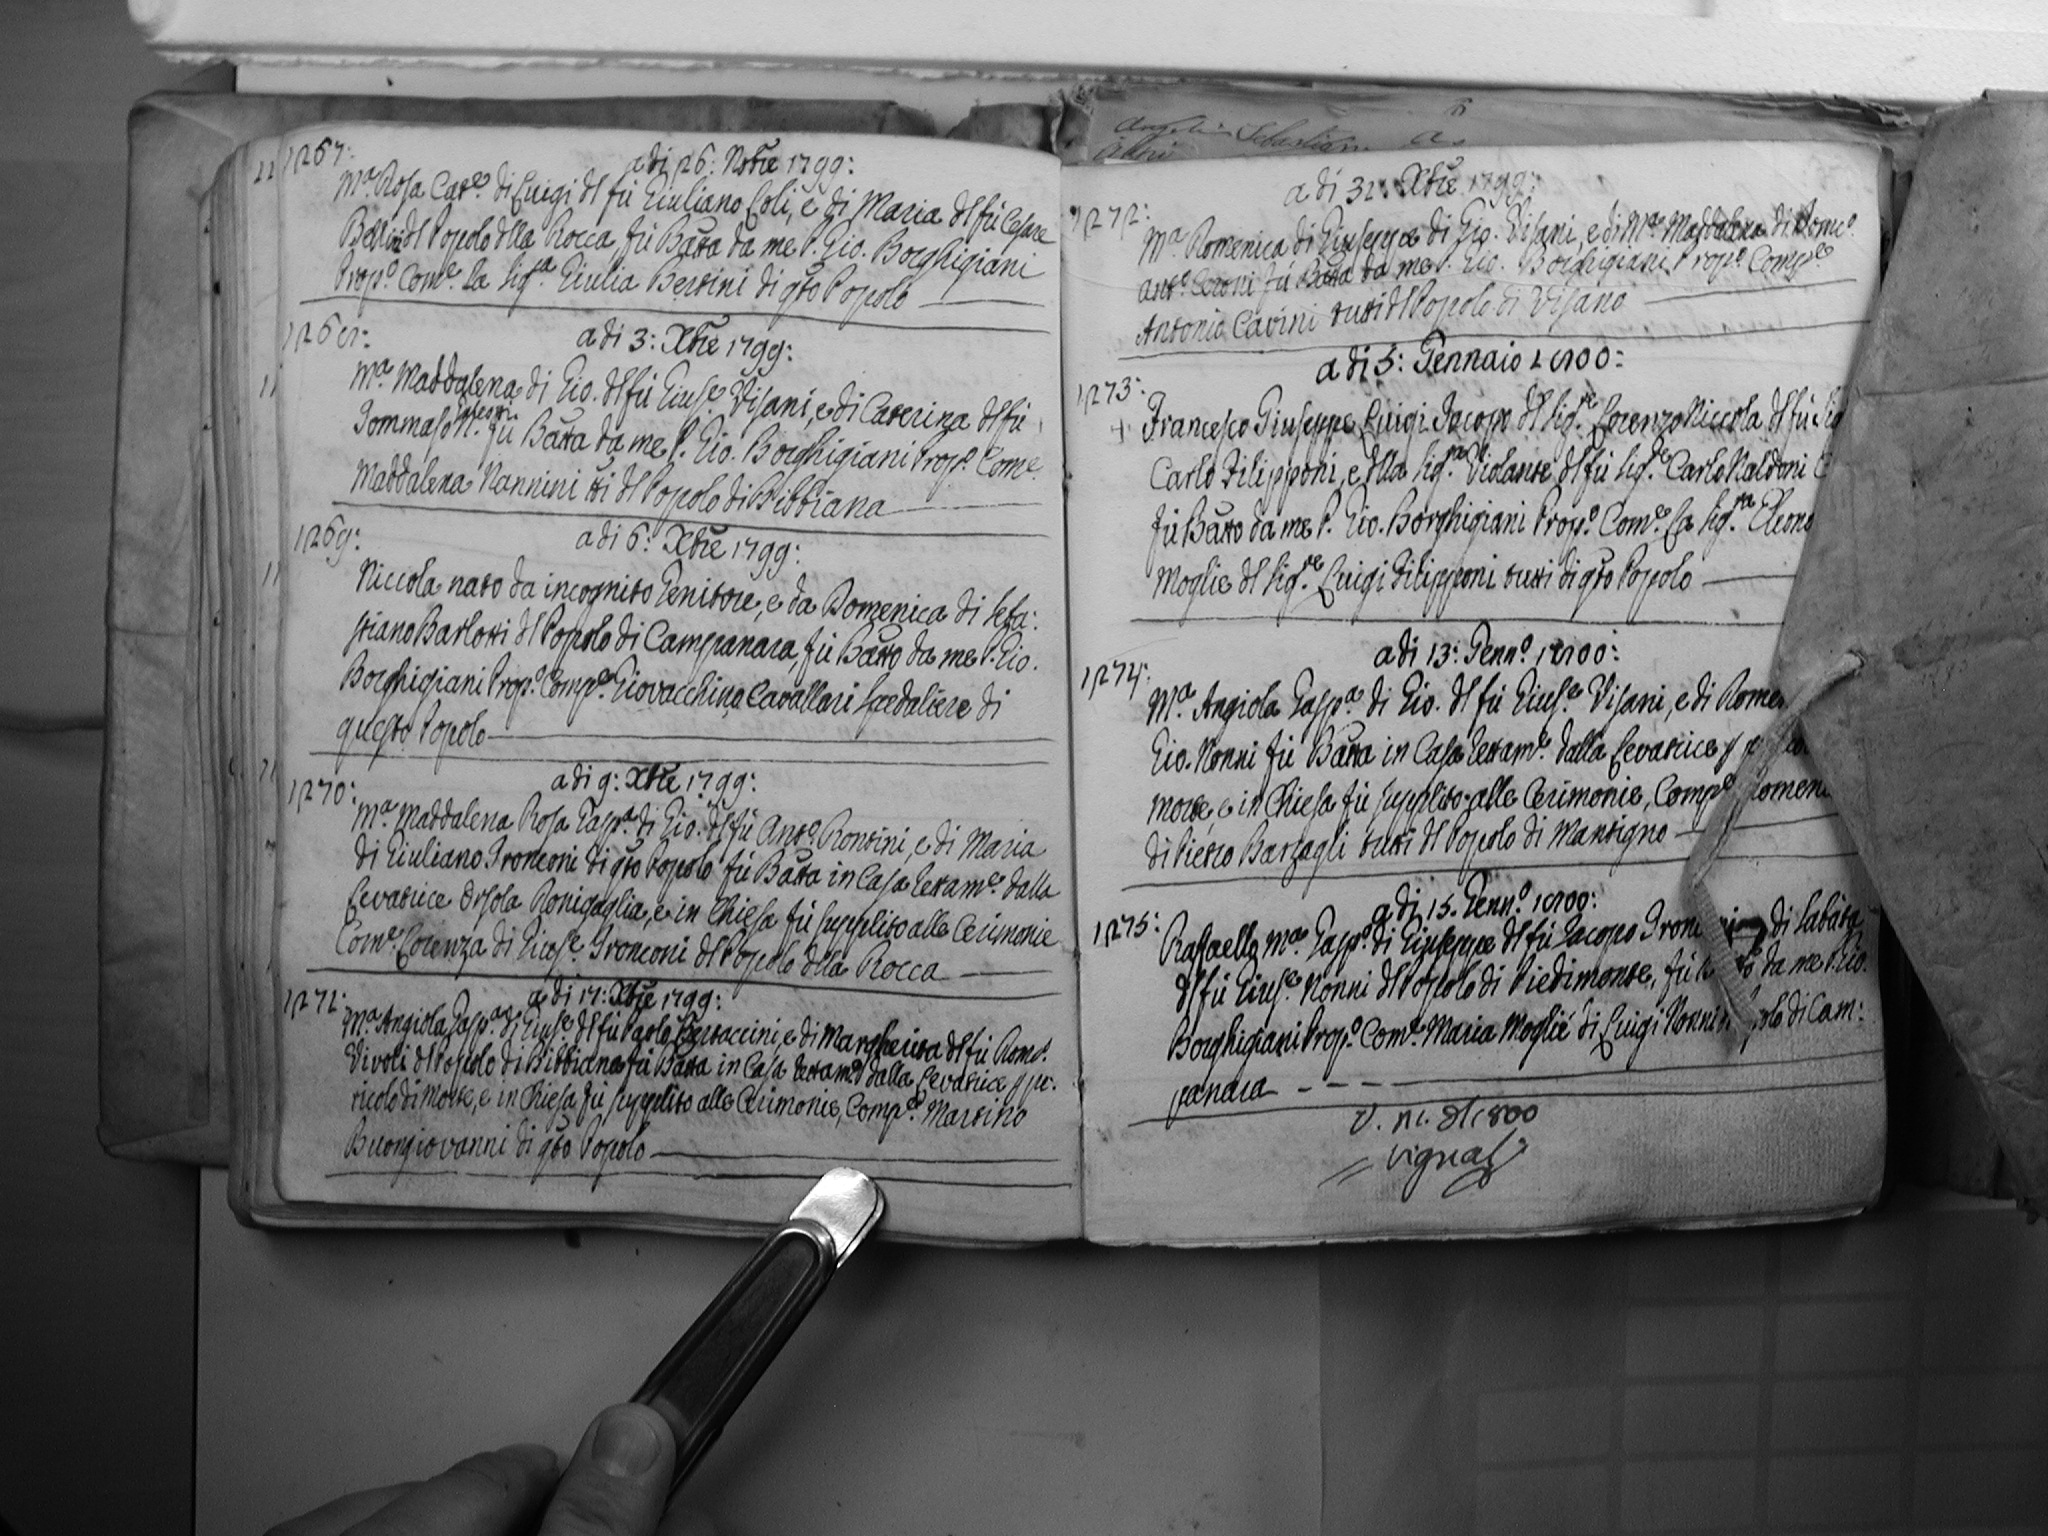 1267:
a di 26: Nbre 1799:
Ma Rosa Cate di Luigi dl fù Giuliano Coli, e di Maria dl fù Cesare
dl Popolo dlla Rocca, fù Batta da me P. Gio. Borghigiani
Propo. Come. la Siga. Giulia Bertini di qto Popolo
1268:
a di 3: Xbre 1799:
Ma. Maddalena di Gio. dl fù Giuse Visani, e di Caterina dl fù
Tommaso fù Batta da me P. Gio. Borghigiani Propo. Come.
Maddalena Nannini tti dl Popolo di Bibbiana
1269:
a di 6: Xbre 1799:
Niccola nato da incognito Genitore, e da Domenica di Seba:
stiano Barlotti dl Popolo di Campanara, fù Batto da me P. Gio.
Borghigiani Propo. Compe. Giovacchino Cavallari Spedaliere di
questo Popolo
1270:
a di 9: Xbre 1799:
Ma. Maddalena Rosa Gaspa. di Gio. dl fù Anto. Rontini, e di Maria
di Giuliano Tronconi di qto Popolo fù Batta in Casa dalla
Levatrice Orsola Ronigaglia, e in Chiesa fù supplito alle Cerimonie
Come. Lorenza di Giuse. Tronconi dl Popolo dlla Rocca
1271:
a di 17: Xbre 1799:
Ma. Angiola Gaspa. di Giuse. dl fù Paolo e di Margherita dl fù Romo.
Vivoli dl Popolo di Bibbiana fù Batta in Casa dalla Levatrice p pe:
ricolo di Morte, e in Chiesa fù supplito alle Cerimonie, Compe. Martino
Buongiovanni di qto Popolo
a di 31: Xbre 1799:
1272:
Ma. Domenica di Giuseppe di Gio. Visani, e di Ma. Maddalena di Domco.
Anto. Ceroni fù Batta da me P. Gio. Borghigiani Propo. Compe.
Antonio Cavini tutti dl Popolo di Visano
a di 5: Gennaio 1800:
1273:
Francesco Giuseppe Luigi Jacopo dl Sigre. Lorenzo Niccola dl fù Sig
Carlo Filipponi, e dlla Siga. Violante dl fù Sige. Carlo Naldoni
fù Batto da me P. Gio. Borghigiani Propo. Come. la Sigra. Eleono
Moglie dl Sigre. Luigi Filipponi tutti di qto Popolo
a di 13: Genno. 1800:
1274:
Ma. Angiola Gaspa. di Gio. dl fù Giuse. Visani, e di Dome
Gio. Nonni fù Batta in Casa dalla Levatrice p
morte, e in Chiesa fù supplito alle Cerimonie, Compe. Domeni
di Pietro Barzagli tutti dl Popolo di Mantigno
a di 15. Genno. 1800:
1275:
Raffaello Ma. Gaspo. di Giuseppe dl fù Jacopo Tron di Sabata
dl fù Giuse. Nonni dl Popolo di Piedimonte, fù da me P. Gio.
Borghigiani Propo. Come. Maria Moglie di Luigi Nonni di Cam:
panara